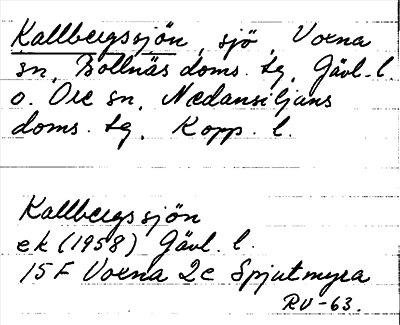 Kallbergssjön, sjö, Voxna
sn, Bollnäs doms. tg, Gävl. l.
o. Ore sn, Nedansiljans
doms. tg, Kopp. l.
Kallbergssjön
ek (1958) Gävl. l.
15 F Voxna 2c Spjutmyra
RV-63.